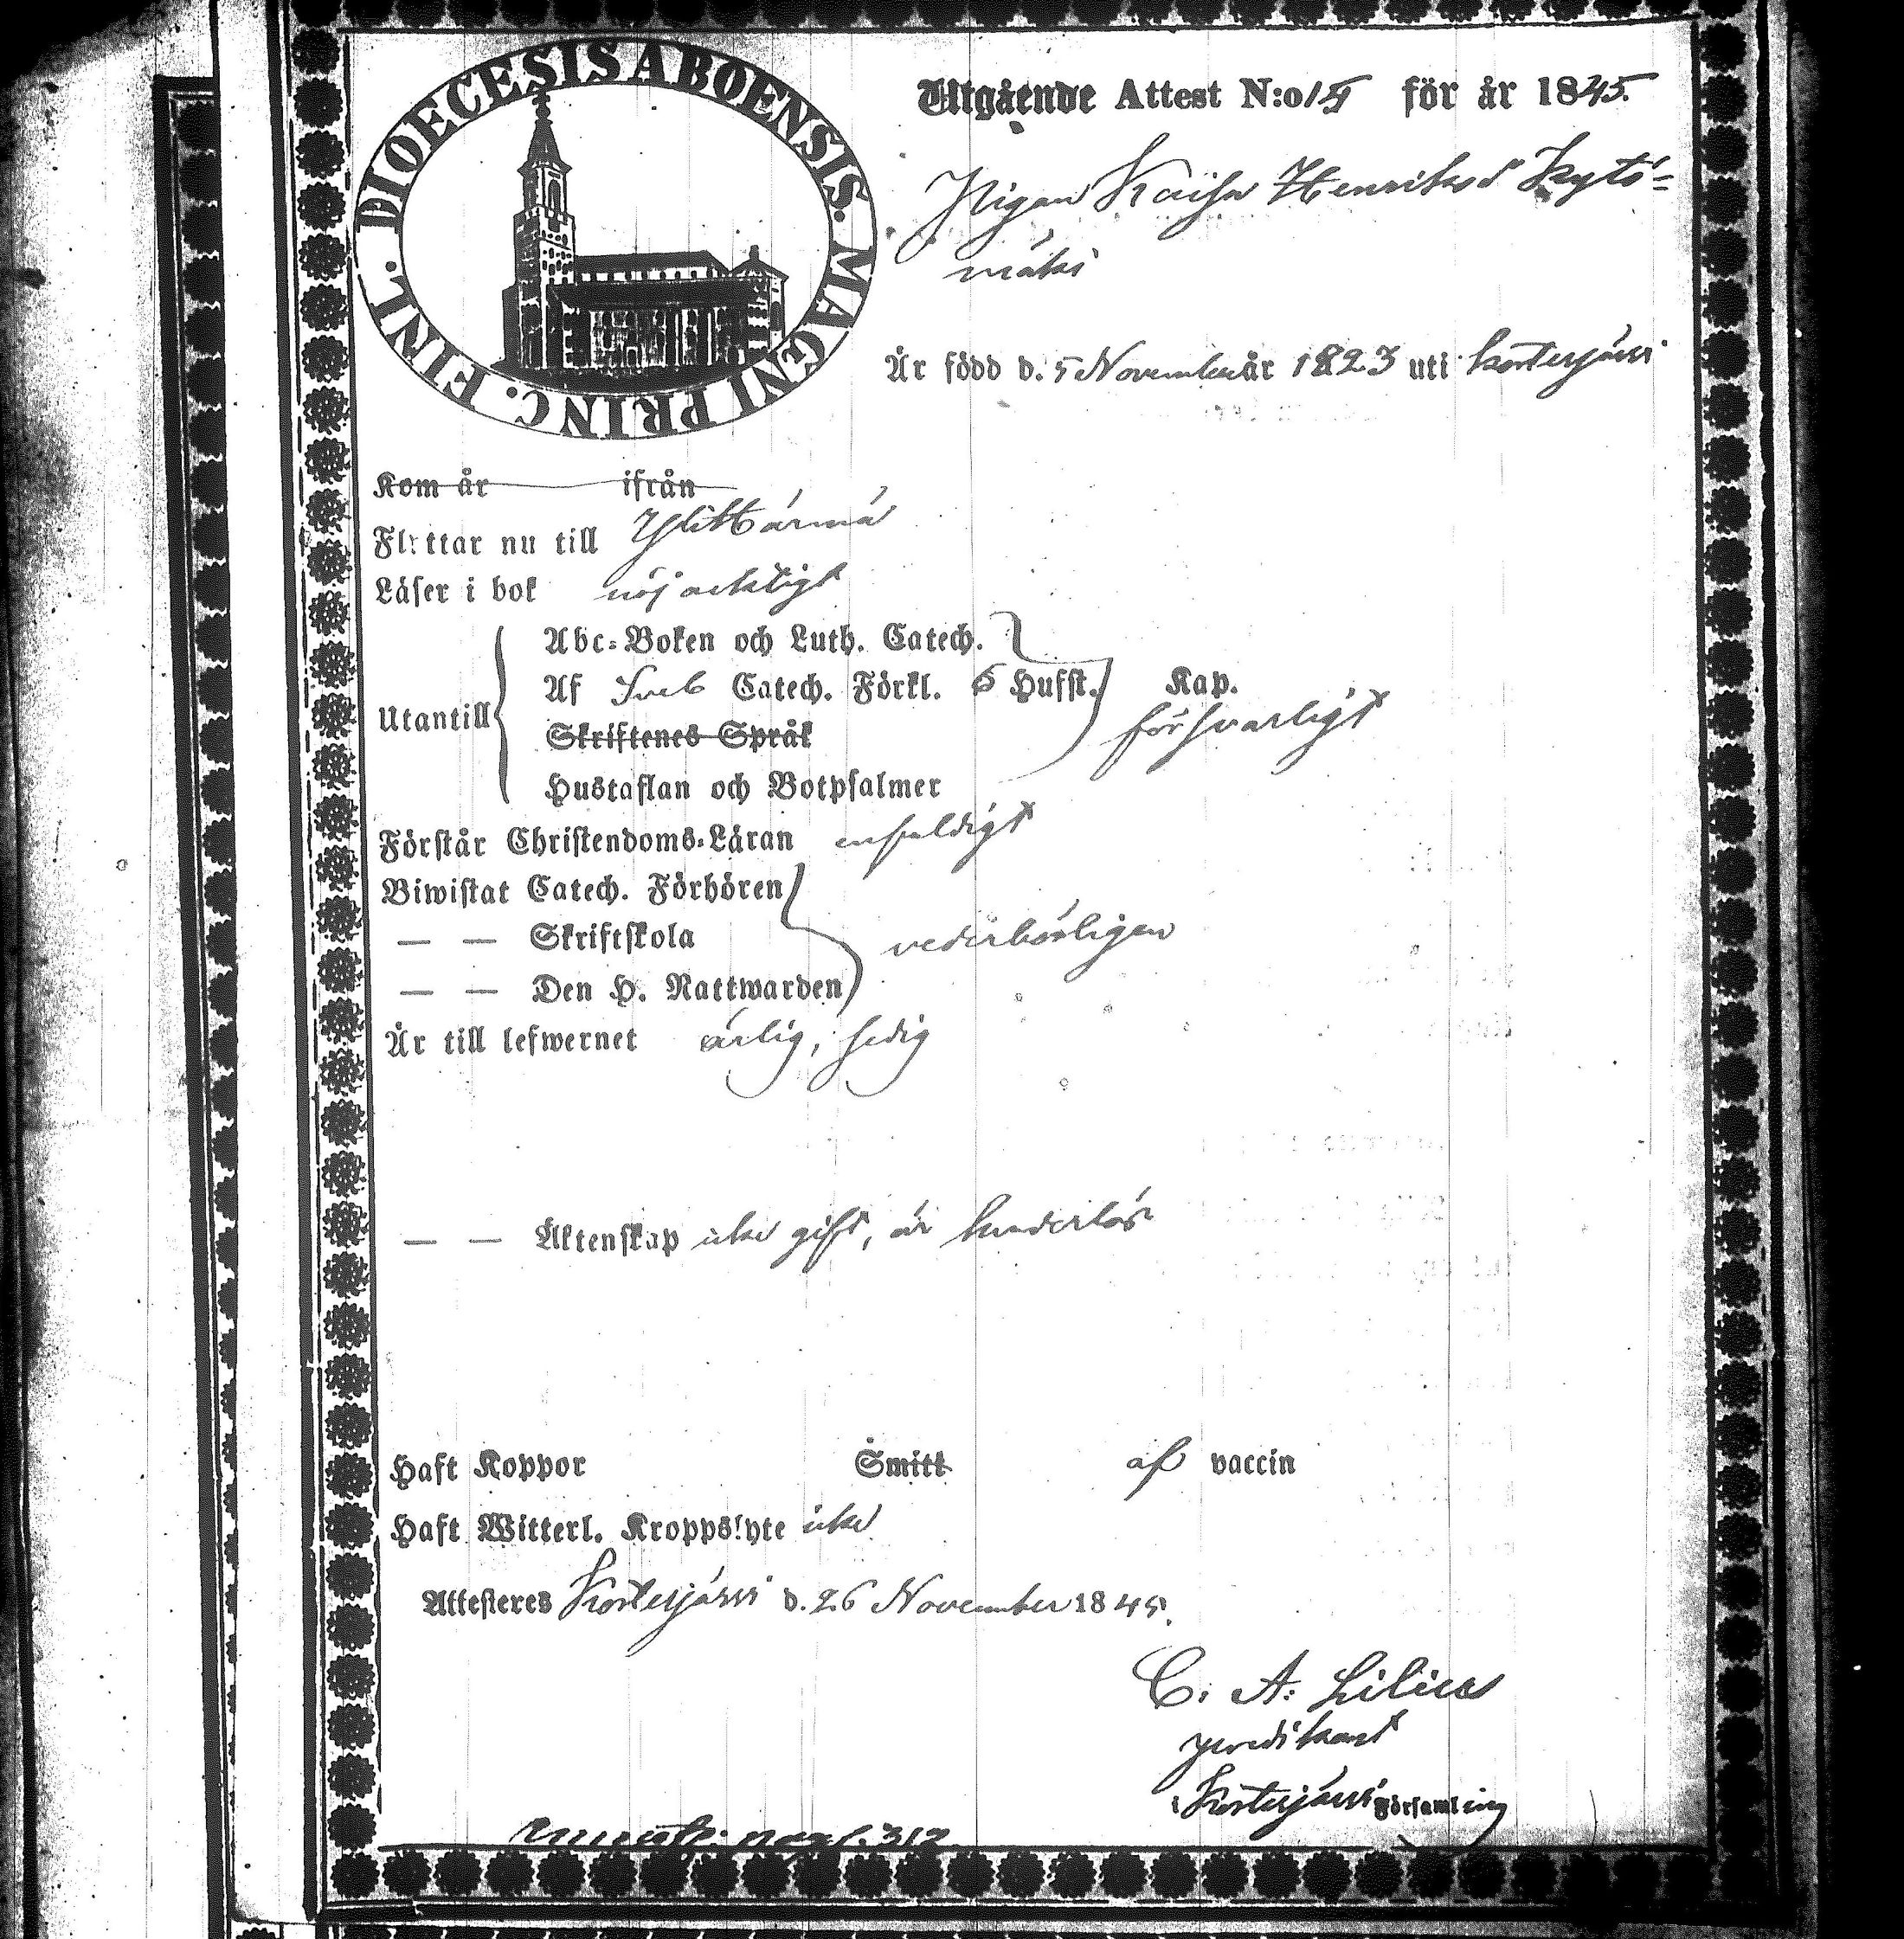 DIOECESIS ABOENSIS. MAGNI PRINC. FINL.
Utgående Attest N:o 14 för år 1845.
Pigan Kaisa Henriksdr Kytö=
mäki
Är född d. 5 November år 1823 uti Kortesjärvi
Kom år ifrån
Flyttar nu till Ylihärmä
Läser i bok nöjachtligt
Utantill
Abc=Boken och Luth. Catech.
Af Sveb Catech. Förkl. 5 Hufst. Kap.
försvarligt
Skriftenes Språk
Hustaflan och Botpsalmer
Förstår Christendoms-Läran enfaldigt
Biwistat Catech. Förhören
— — Skriftskola vederbörligen
— — Den H. Nattwarden
Är till lefwernet ärlig, sedig
— — Äktenskap icke gift, är hinderlös
Haft Koppor Smitt af vaccin
Haft Witterl. Kroppslyte icke
Attesteres Kortesjärvi d. 26 November 1845.
C. A. Lilius
predikant
i Kortesjärvi Församling
pag. 312